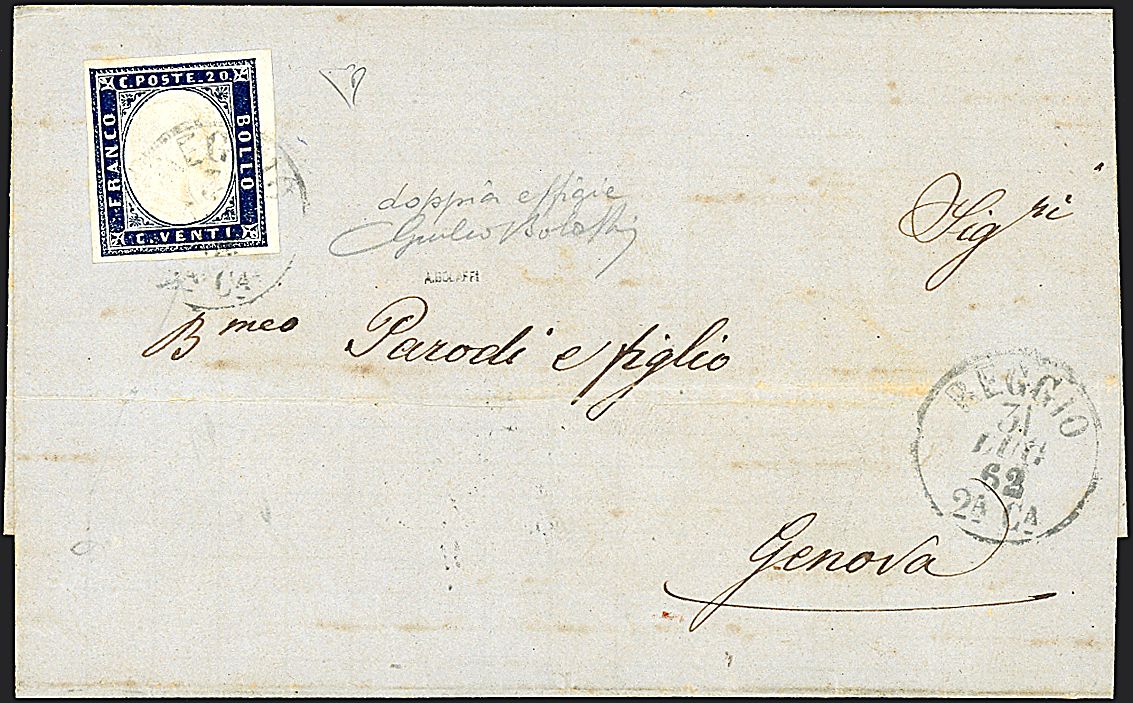 C. POSTE. 20.
FRANCO
BOLLO
C. VENTI.
REGGIO
CA
doppia effigie
Giulio Bolaffi
A. BOLAFFI
Sigri
Bmeo Parodi e figlio
REGGIO
31
LUG
62
2A CA
Genova